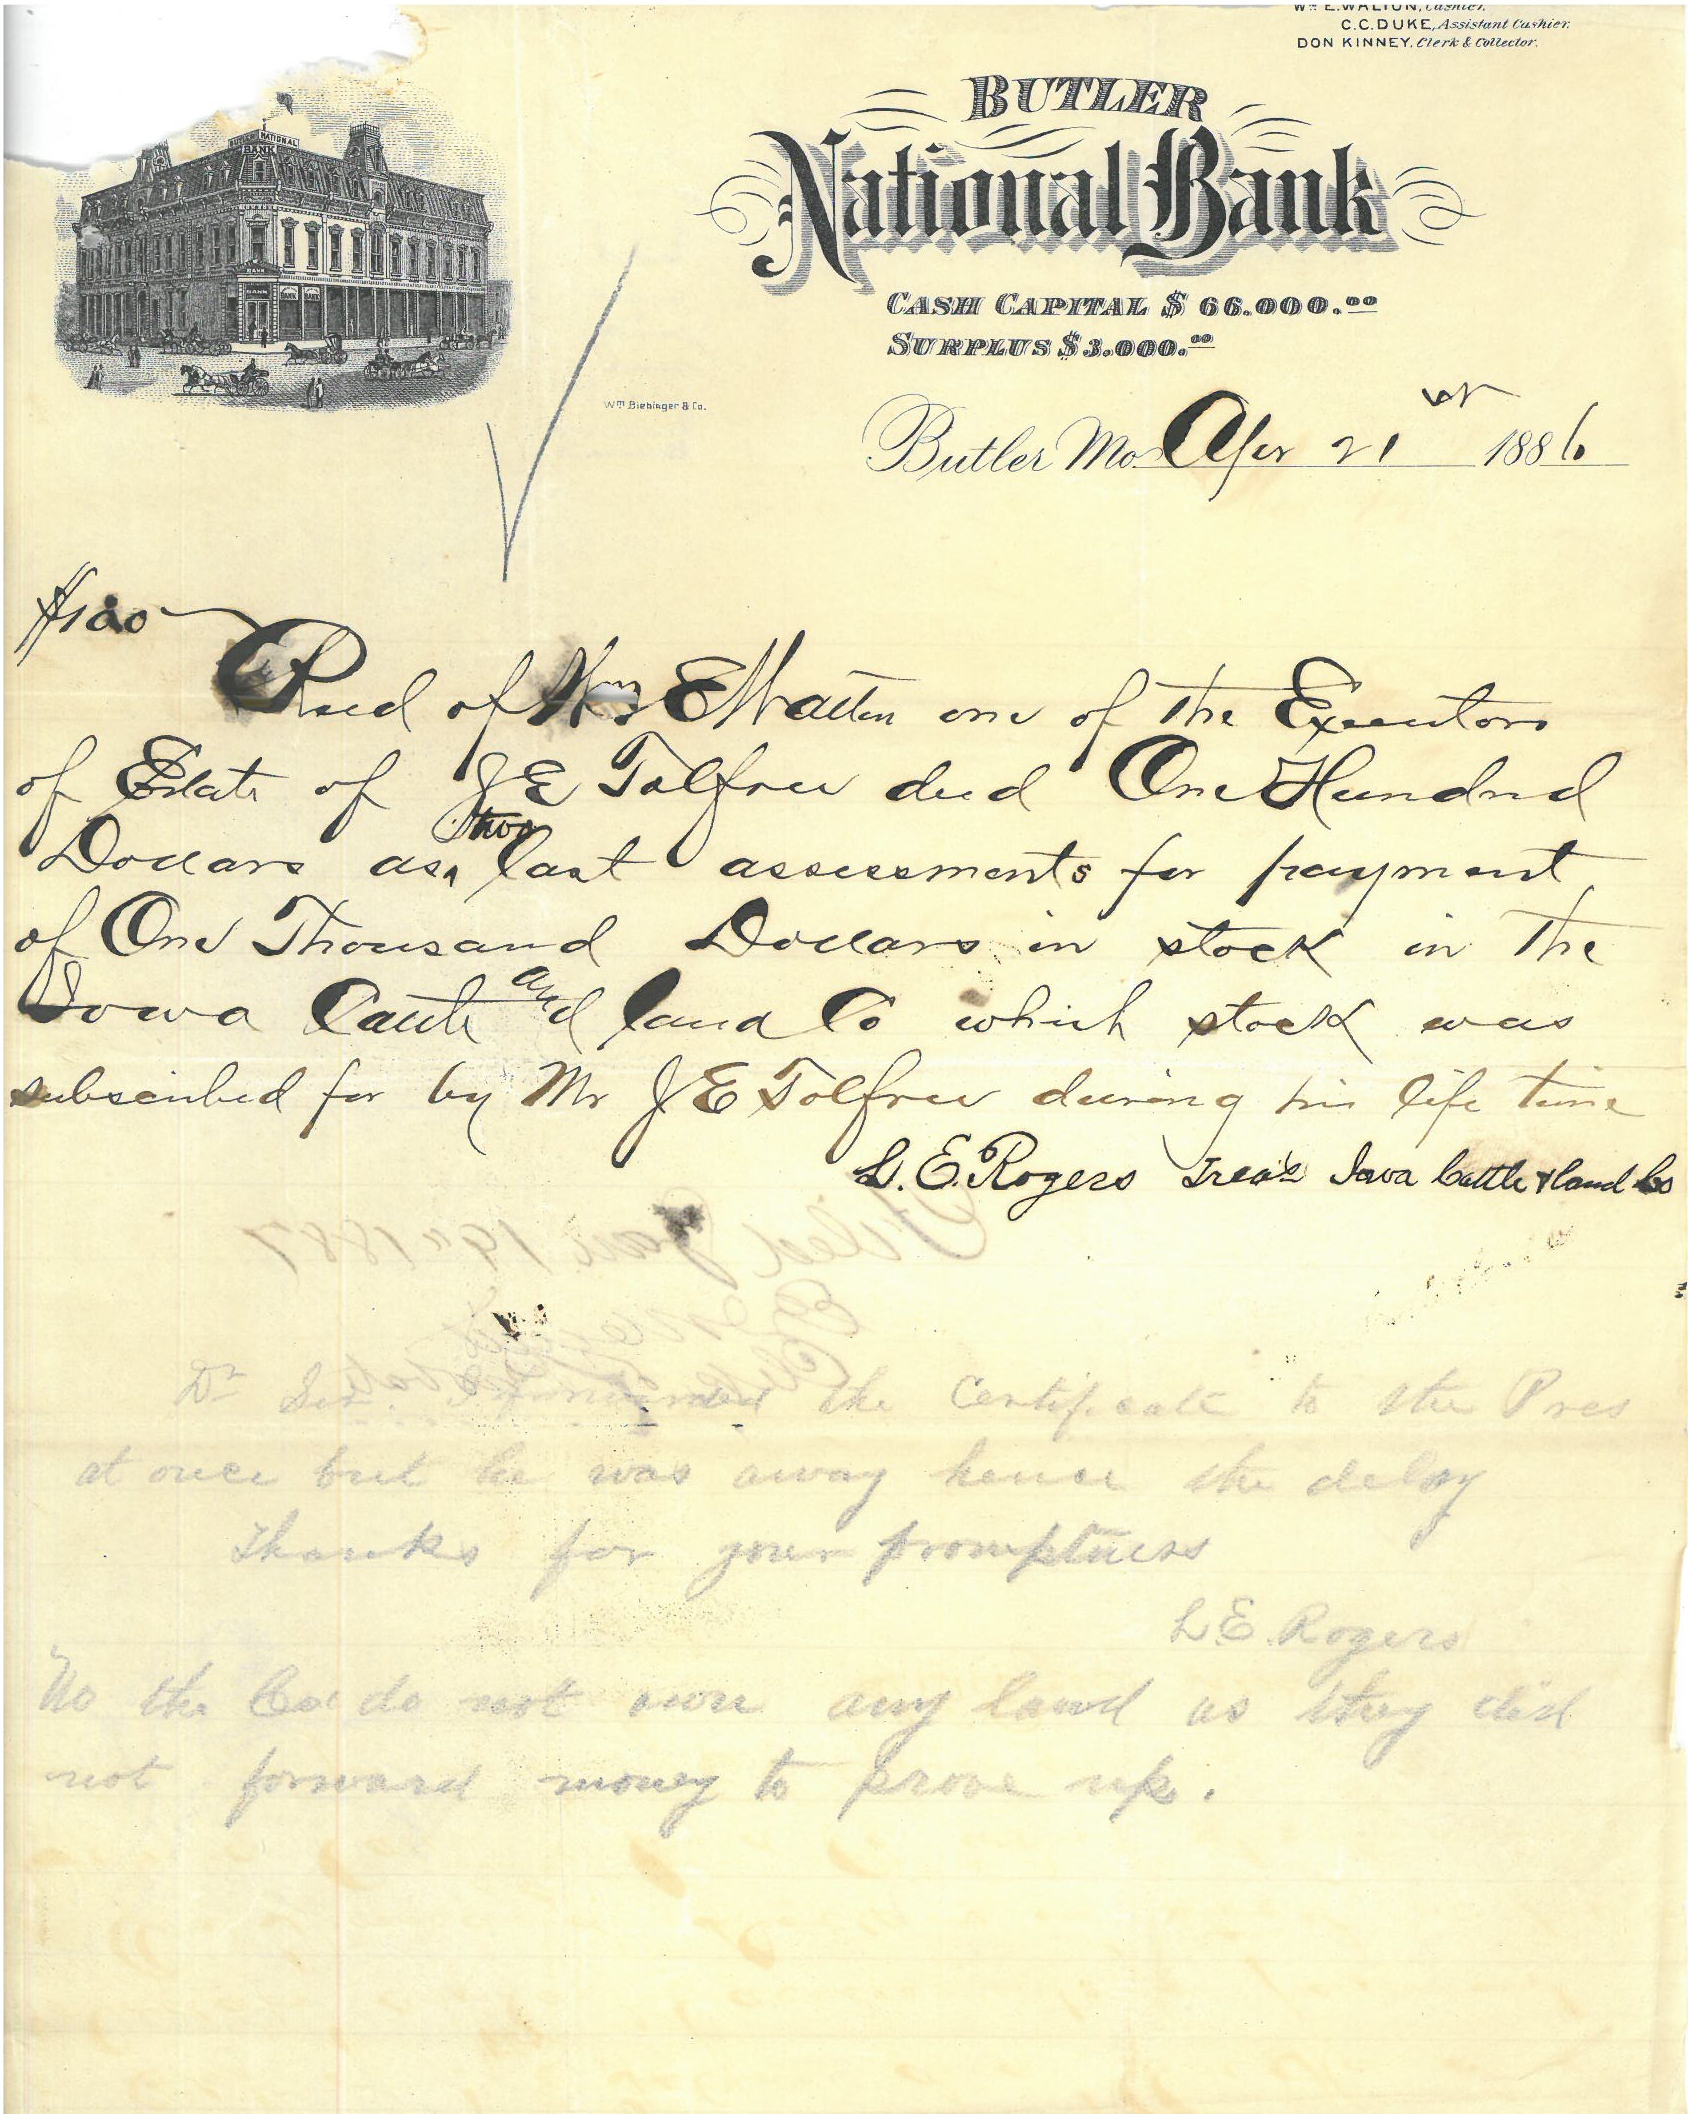 Wm E. WALTON, Cashier.
C. C. DUKE, Assistant Cashier.
DON KINNEY, Clerk & Collector.
BUTLER NATIONAL
BANK
BANK
BANK
BANK BANK
BUTLER
National Bank
CASH CAPITAL $ 66.000.00
SURPLUS $ 3.000.00
Wm Biebinger & Co.
Butler Mo Apr 21st 1886
$100
Recd of Wm E Walton one of the Executors
of Estate of J E Tolfree decd One Hundred
Dollars as two last assessments for payment
of One Thousand Dollars in stock in the
Iowa Cattle and land Co which stock was
subscribed for by Mr J E Tolfree during his life time
L. E. Rogers Treas Iowa Cattle & land Co
Filed Jan 19" 1887
Clerk Probate
Dr Sir. I forwarded the Certificate to the Pres
at once but he was away hence the delay
Thanks for your promptness
L. E. Rogers
No the Co do not own any land as they did
not forward money to prove up.